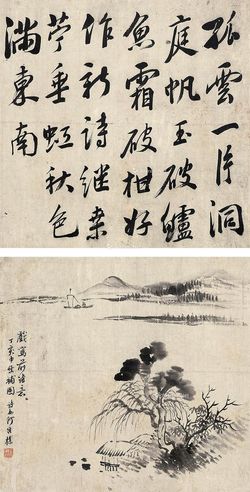 孤雲一片洞
庭帆玉破鱸
魚霜破柑好
作新詩继桑
苧垂虹秋色
满東南
戲寫前詩意
丁亥 補圖